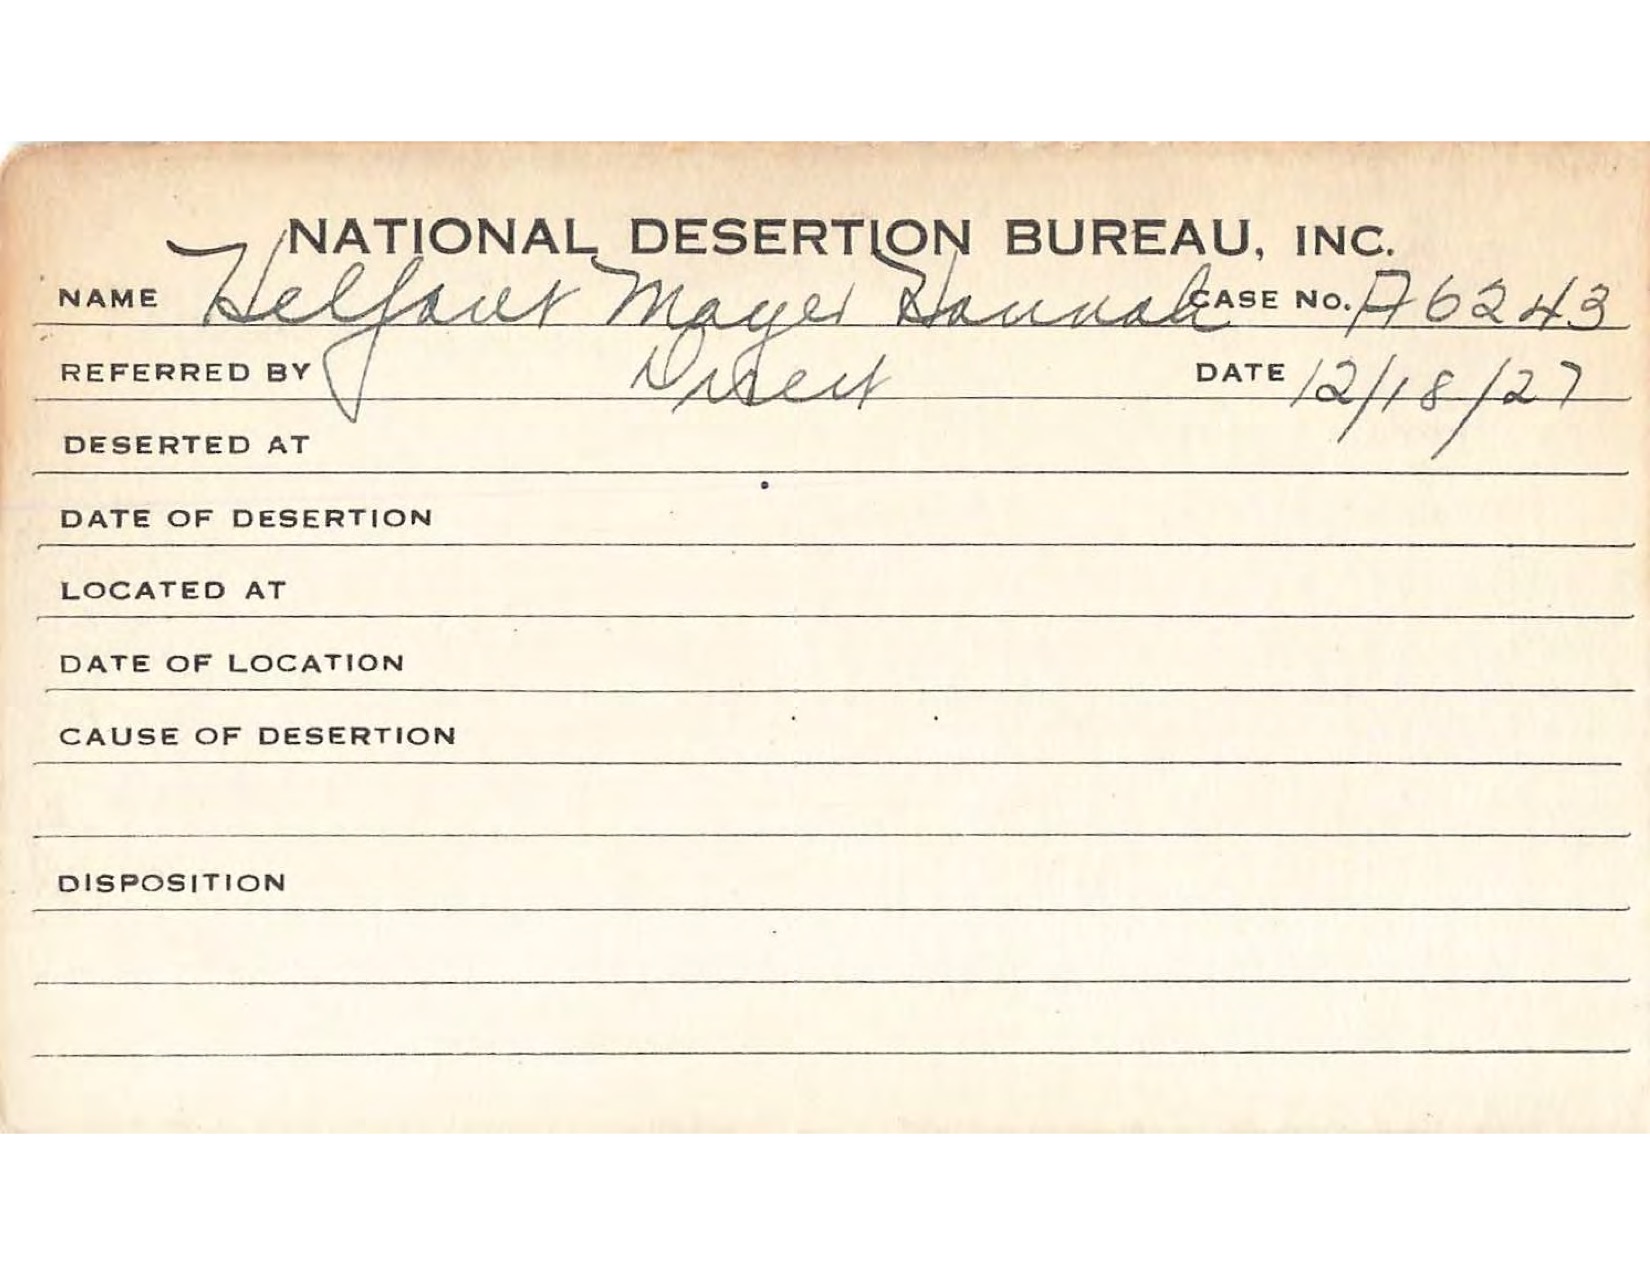 NATIONAL DESERTION BUREAU, INC.
NAME Helfant Mayer Hannah CASE NO. A6243
REFERRED BY Direct DATE 12/18/27
DESERTED AT
DATE OF DESERTION
LOCATED AT
DATE OF LOCATION
CAUSE OF DESERTION
DISPOSITION